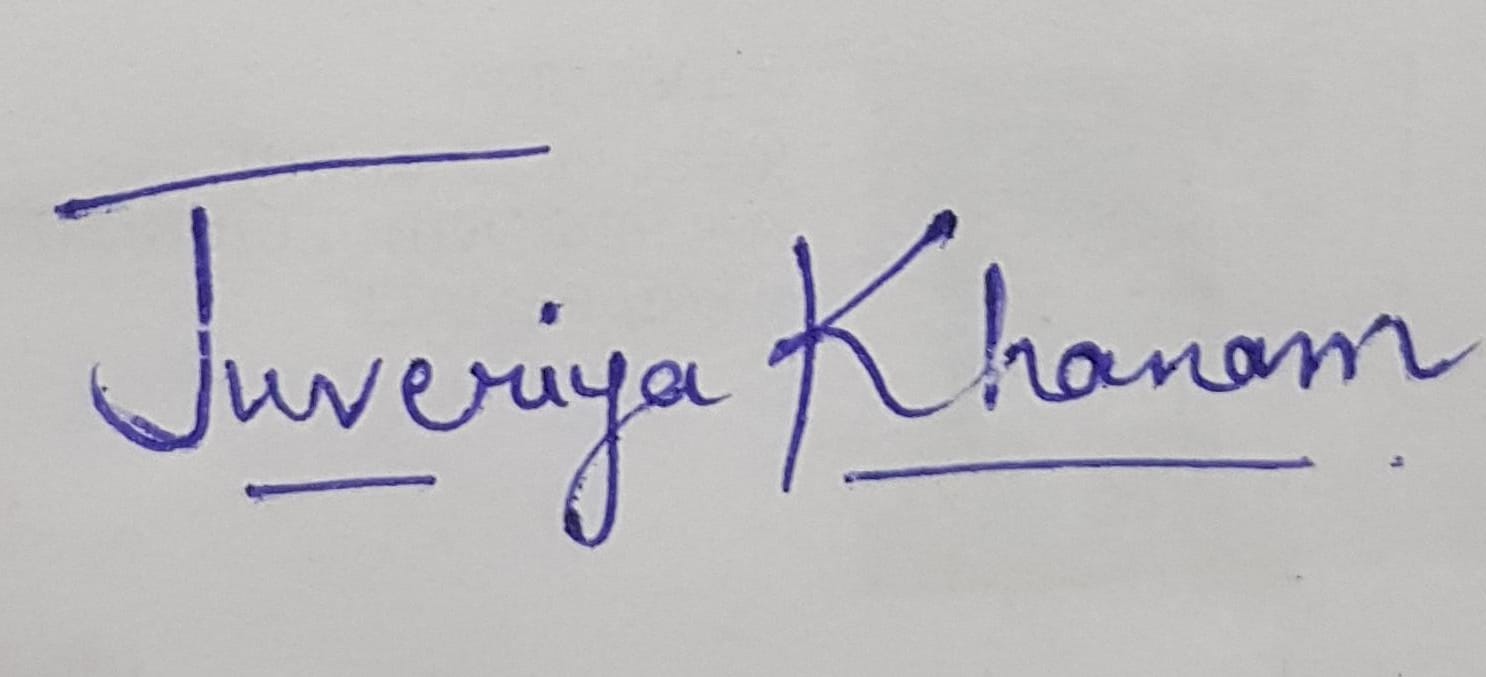 Juveriya Khanam